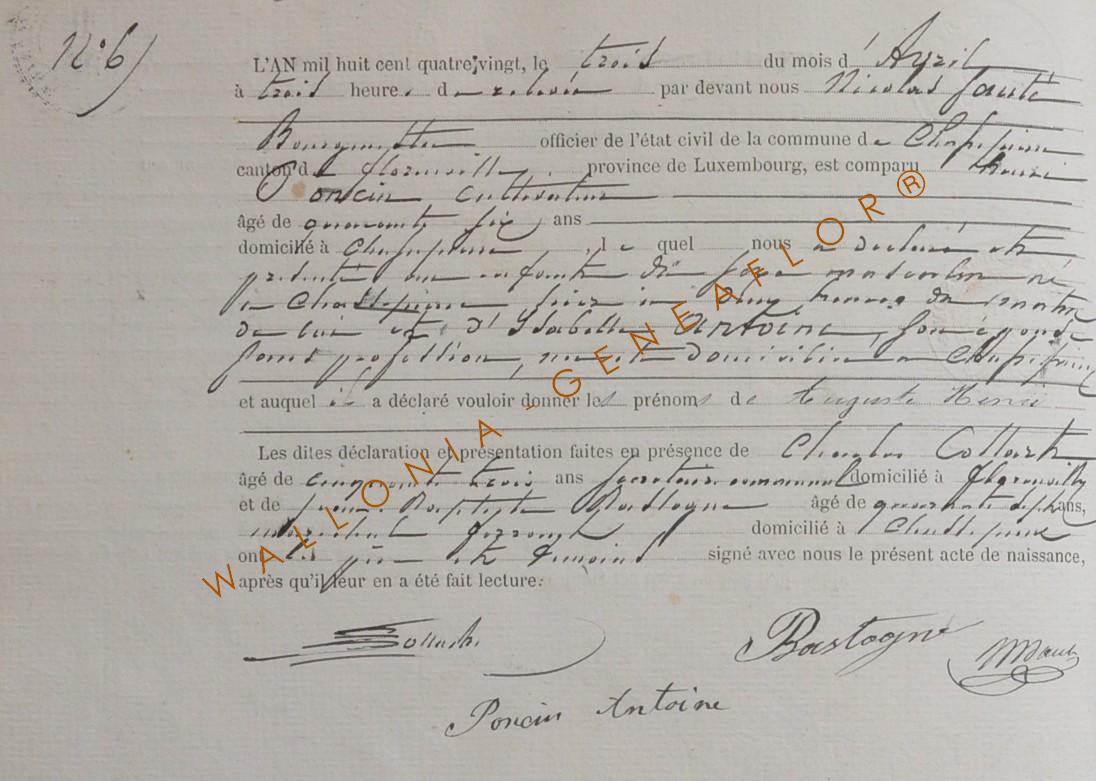 N° 6
L'AN mil huit cent quatre-vingt, le trois du mois d'Avril
à trois heures de relevée par devant nous Nicolas Sauté
Bourgmestre officier de l'état civil de la commune de Chassepierre
canton de Florenville, province de Luxembourg, est comparu Henri
Poncin cultivateur
âgé de quarante six ans
domicilié à Chassepierre, le quel nous a déclaré et
présenté un enfant du sexe masculin né
à Chassepierre hier à heures du matin
de lui et d'Isabelle Antoine, son épouse
sans profession, domiciliée à Chassepierre
et auquel il a déclaré vouloir donner les prénoms de Auguste Henri
Les dites déclaration et présentation faites en présence de Charles Collart
âgé de cinquante trois ans secrétaire communal domicilié à Florenville
et de Jean Baptiste Bastogne âgé de quarante sept ans,
maréchal ferrant domicilié à Chassepierre
ont les père et témoins signé avec nous le présent acte de naissance,
après qu'il leur en a été fait lecture.
Collart
Bastogne
Poncin Antoine
WALLONIA-GENEAFLOR®